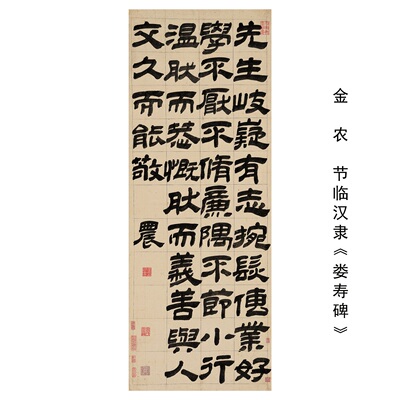 先生岐嶷有志捥髮傳業好
學不厭不脩廉隅不節小行
溫肰而恭慨肰而義善與人
交久而能敬
農
金 农 节临汉隶《娄寿碑》